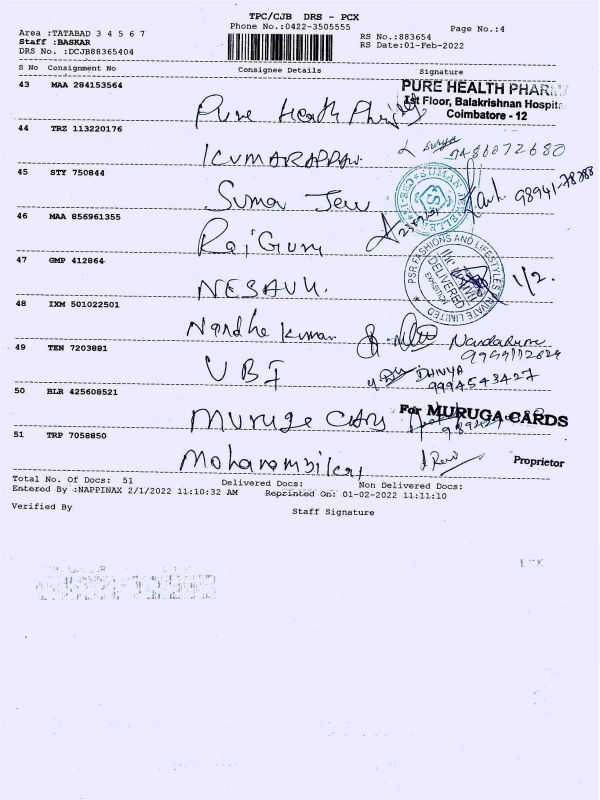 TPC/CJB DRS - PCX
Phone No.:0422-3505555
Page No.:4
Area :TATABAD 3 4 5 6 7
Staff :BASKAR
DRS No. :DCJB88365404
RS No.:883654
RS Date:01-Feb-2022
S No Consignment No Consignee Details Signature
43 MAA 284153564
Pure Heath
PURE HEALTH PHARM
1st Floor, Balakrishnan Hospita
Coimbatore - 12
44 TRZ 113220176
KUMARAPPAN
Surya
45 STY 750844
Suman Jew
98941-78388
46 MAA 856961355
Raj Guru
47 GMP 412864
NESAVU.
PSR FASHIONS AND LIFESTYLES PRIVATE LIMITED
DELIVERED
1/2.
48 IXM 501022501
Nandha Kumar
49 TEN 7203881
UBI
DHIVYA
9994543427
50 BLR 425608521
Muruga CARDS
For MURUGA CARDS
51 TRP 7058850
Proprietor
Total No. Of Docs: 51 Delivered Docs: Non Delivered Docs:
Entered By :NAPPINAX 2/1/2022 11:10:32 AM Reprinted On: 01-02-2022 11:11:10
Verified By
Staff Signature